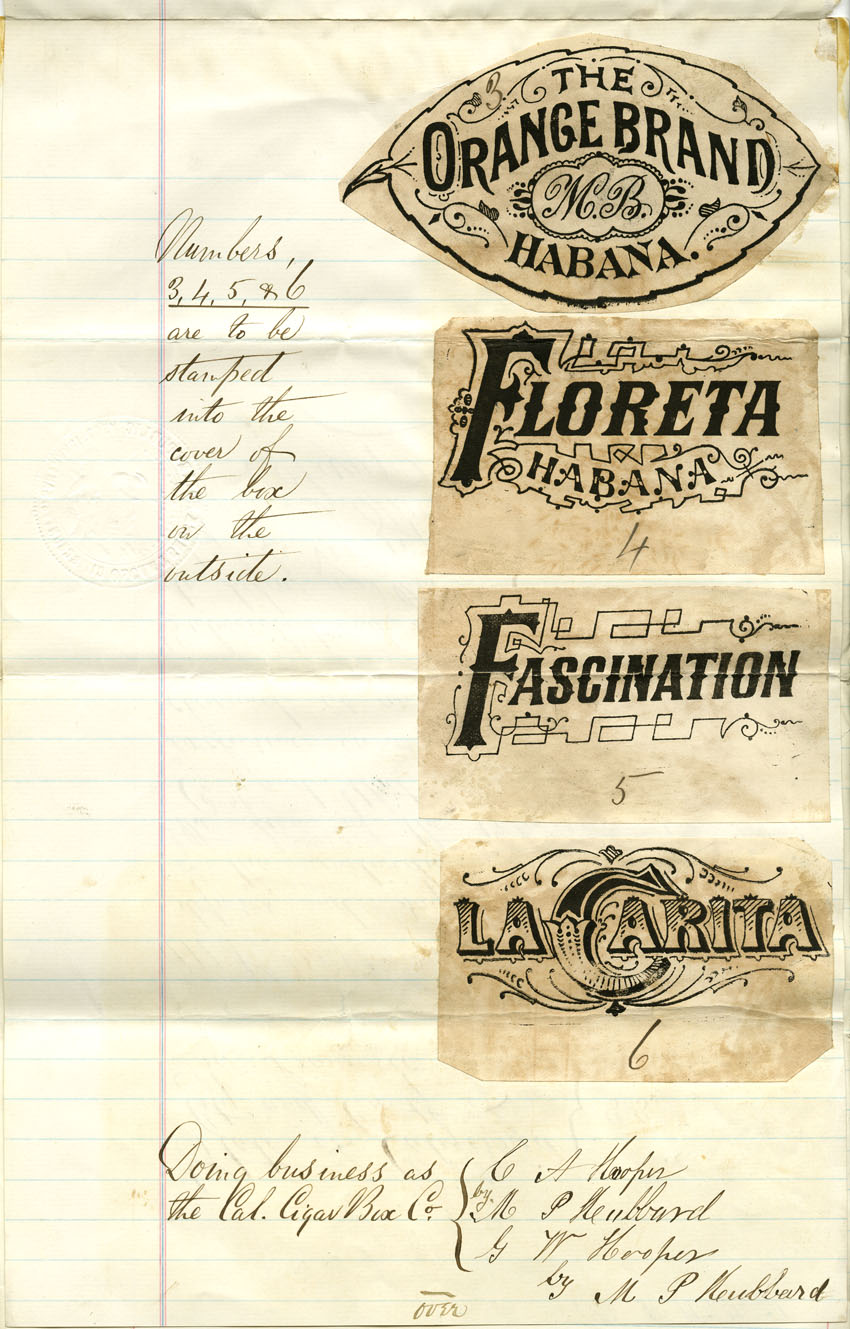 3
THE
ORANGE BRAND
M.B.
HABANA.
Numbers,
3, 4, 5, & 6
are to be
stamped
into the
cover of
the box
on the
outside.
FLORETA
HABANA
4
FASCINATION
5
LA CARITA
6
Doing business as
the Cal. Cigar Box Co.
C A Hooper
by M P Hubbard
G W Hooper
by M P Hubbard
over